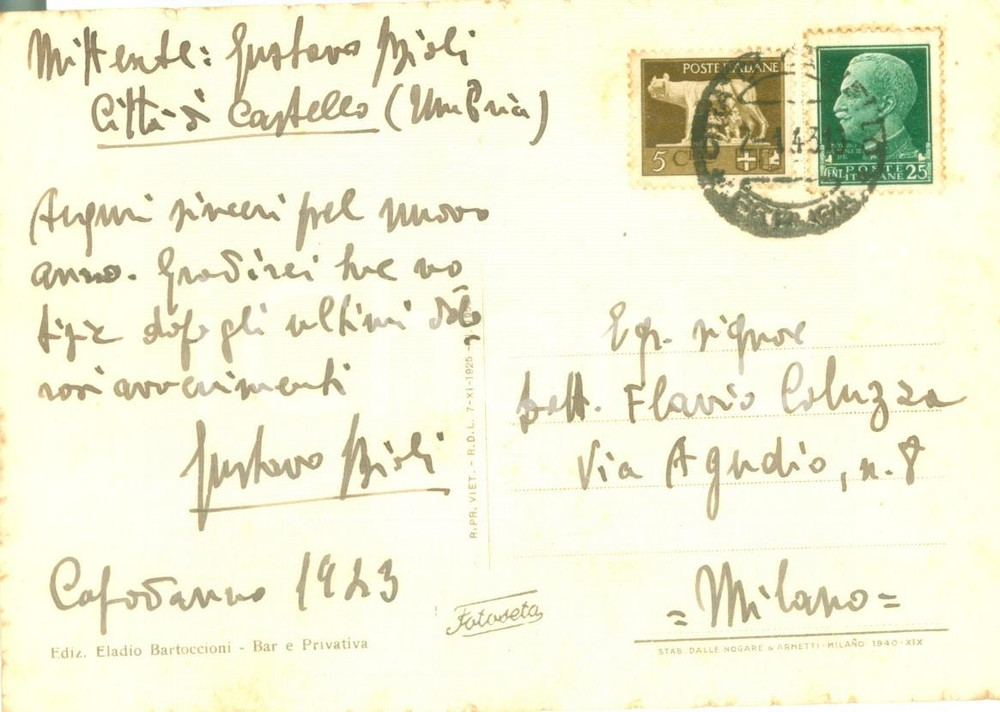 Mittente: Gustavo Bioli
Città di Castello (Umbria)
Auguri sinceri pel nuovo
anno. Gradirei tue no
tizie dopo gli ultimi dolo
rosi avvenimenti
Gustavo Bioli
Capodanno 1943
Ediz. Eladio Bartoccioni - Bar e Privativa
R. PR. VIET. - R.D.L. 7-XI-1925 -
Fotoseta
POSTE ITALIANE
5 CENT
POSTE
ITALIANE
CENT. 25
Egr. signore
Dott. Flavio Coluzza
Via Agudio, n. 8
= Milano =
STAB. DALLE NOGARE & ARMETTI - MILANO 1940-XIX